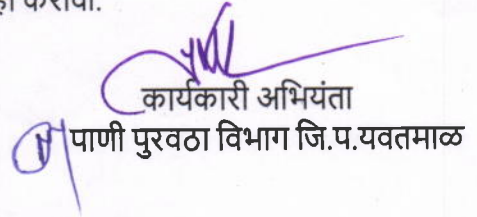 करावा.
कार्यकारी अभियंता
पाणी पुरवठा विभाग जि.प.यवतमाळ